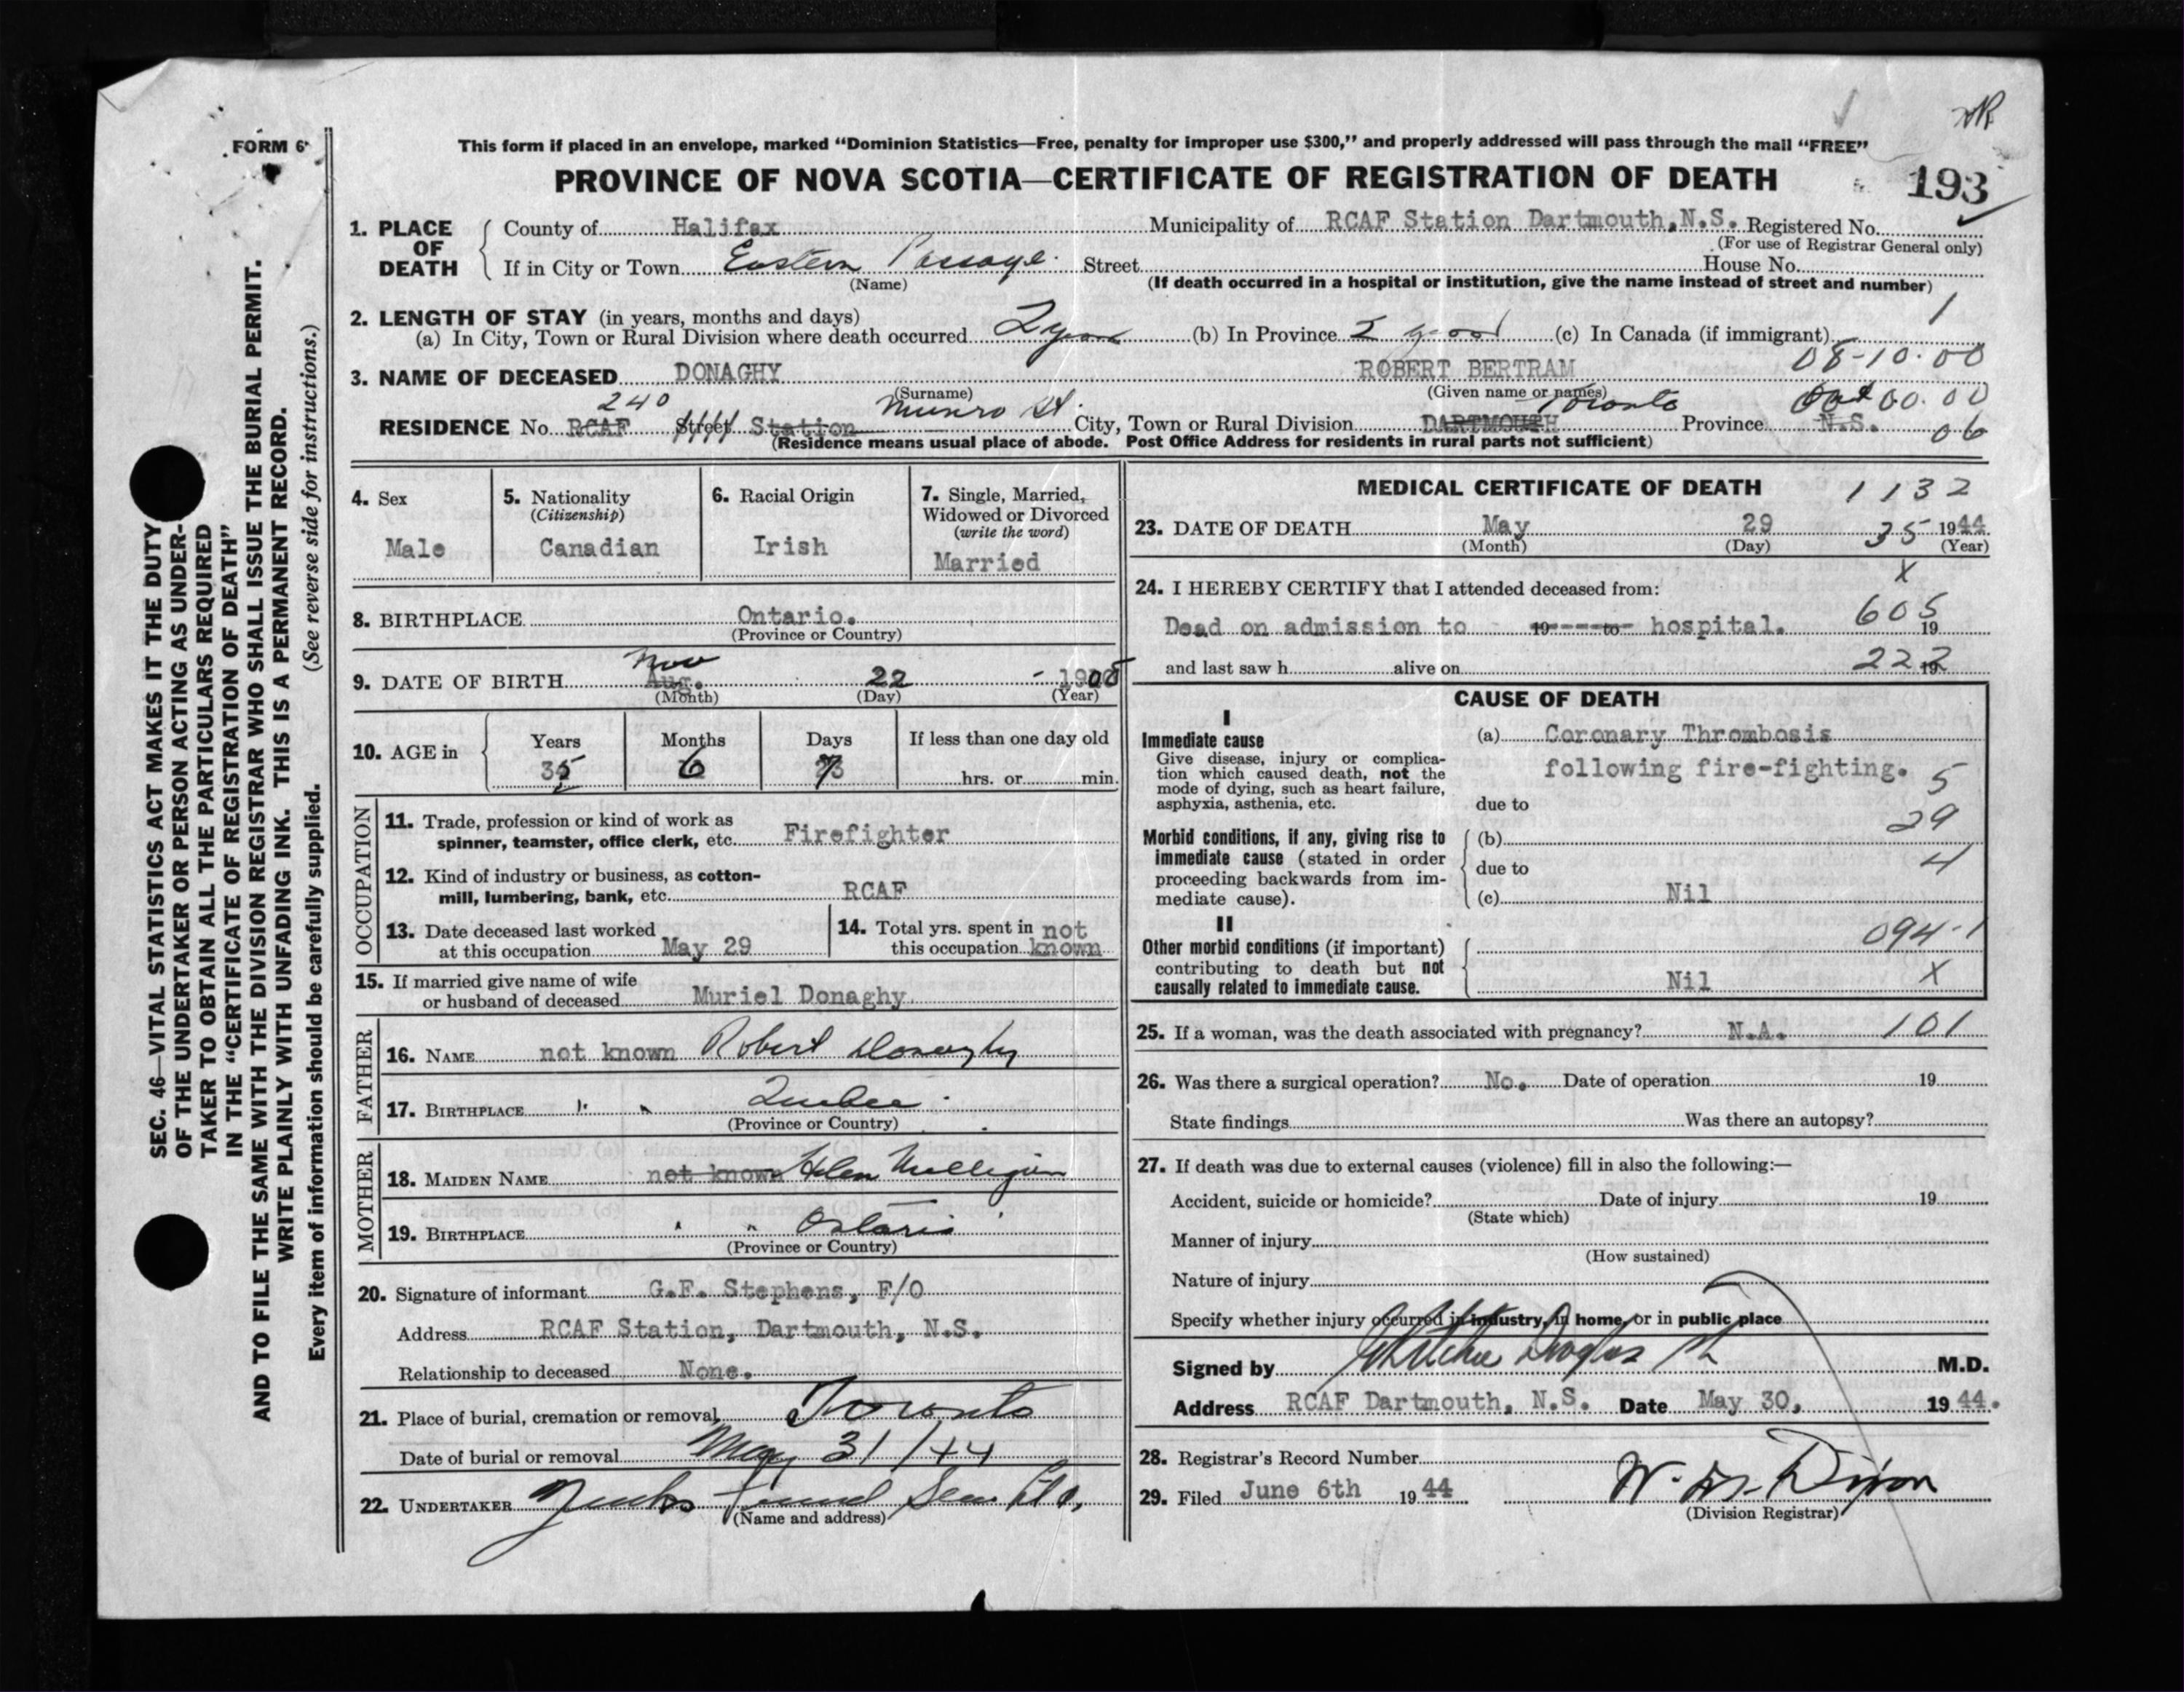 FORM 6
This form if placed in an envelope, marked “Dominion Statistics—Free, penalty for improper use $300,” and properly addressed will pass through the mail “FREE”
PROVINCE OF NOVA SCOTIA—CERTIFICATE OF REGISTRATION OF DEATH
193
1. PLACE OF DEATH
County of Halifax Municipality of RCAF Station Dartmouth, N.S. Registered No.
(For use of Registrar General only)
If in City or Town Eastern Passage. Street House No.
(Name) (If death occurred in a hospital or institution, give the name instead of street and number)
2. LENGTH OF STAY (in years, months and days) 1
(a) In City, Town or Rural Division where death occurred 2 years (b) In Province 2 years (c) In Canada (if immigrant)
08-10.00
3. NAME OF DECEASED DONAGHY ROBERT BERTRAM
(Surname) (Given name or names)
240 Munro St. Toronto 00.00
RESIDENCE No. RCAF Street Station City, Town or Rural Division DARTMOUTH Province N.S. 06
(Residence means usual place of abode. Post Office Address for residents in rural parts not sufficient)
4. Sex
Male
5. Nationality
(Citizenship)
Canadian
6. Racial Origin
Irish
7. Single, Married,
Widowed or Divorced
(write the word)
Married
8. BIRTHPLACE Ontario.
(Province or Country)
Nov
9. DATE OF BIRTH Aug. 22 - 1908
(Month) (Day) (Year)
10. AGE in
Years Months Days If less than one day old
35 6 7 hrs. or min.
OCCUPATION
11. Trade, profession or kind of work as
spinner, teamster, office clerk, etc. Firefighter
12. Kind of industry or business, as cotton-
mill, lumbering, bank, etc. RCAF
13. Date deceased last worked
at this occupation May 29
14. Total yrs. spent in not
this occupation known
15. If married give name of wife
or husband of deceased Muriel Donaghy.
FATHER
16. NAME not known Robert Donaghy
17. BIRTHPLACE " " Quebec
(Province or Country)
MOTHER
18. MAIDEN NAME not known Helen Mulligan
19. BIRTHPLACE " " Ontario
(Province or Country)
20. Signature of informant G.F. Stephens, F/O
Address RCAF Station, Dartmouth, N.S.
Relationship to deceased None.
21. Place of burial, cremation or removal Toronto
Date of burial or removal May 31/44
22. UNDERTAKER Funeral
(Name and address)
MEDICAL CERTIFICATE OF DEATH 1132
23. DATE OF DEATH May 29 35 1944
(Month) (Day) (Year)
X
24. I HEREBY CERTIFY that I attended deceased from:
605
Dead on admission to 19 to hospital. 19
222
and last saw h alive on 19
CAUSE OF DEATH
I
Immediate cause
Give disease, injury or complica-
tion which caused death, not the
mode of dying, such as heart failure,
asphyxia, asthenia, etc.
(a) Coronary Thrombosis
following fire-fighting.
5
due to
29
Morbid conditions, if any, giving rise to
immediate cause (stated in order
proceeding backwards from im-
mediate cause).
(b)
4
due to
(c) Nil
II
Other morbid conditions (if important)
contributing to death but not
causally related to immediate cause.
094-1
Nil X
25. If a woman, was the death associated with pregnancy? N.A. 101
26. Was there a surgical operation? No. Date of operation 19
State findings Was there an autopsy?
27. If death was due to external causes (violence) fill in also the following:—
Accident, suicide or homicide? Date of injury 19
(State which)
Manner of injury
(How sustained)
Nature of injury
Specify whether injury occurred in industry, in home, or in public place
Signed by Douglas M.D.
Address RCAF Dartmouth, N.S. Date May 30, 1944.
28. Registrar's Record Number
29. Filed June 6th 1944 Dixon
(Division Registrar)
SEC. 46—VITAL STATISTICS ACT MAKES IT THE DUTY
OF THE UNDERTAKER OR PERSON ACTING AS UNDER-
TAKER TO OBTAIN ALL THE PARTICULARS REQUIRED
IN THE “CERTIFICATE OF REGISTRATION OF DEATH”
AND TO FILE THE SAME WITH THE DIVISION REGISTRAR WHO SHALL ISSUE THE BURIAL PERMIT.
WRITE PLAINLY WITH UNFADING INK. THIS IS A PERMANENT RECORD.
Every item of information should be carefully supplied. (See reverse side for instructions.)